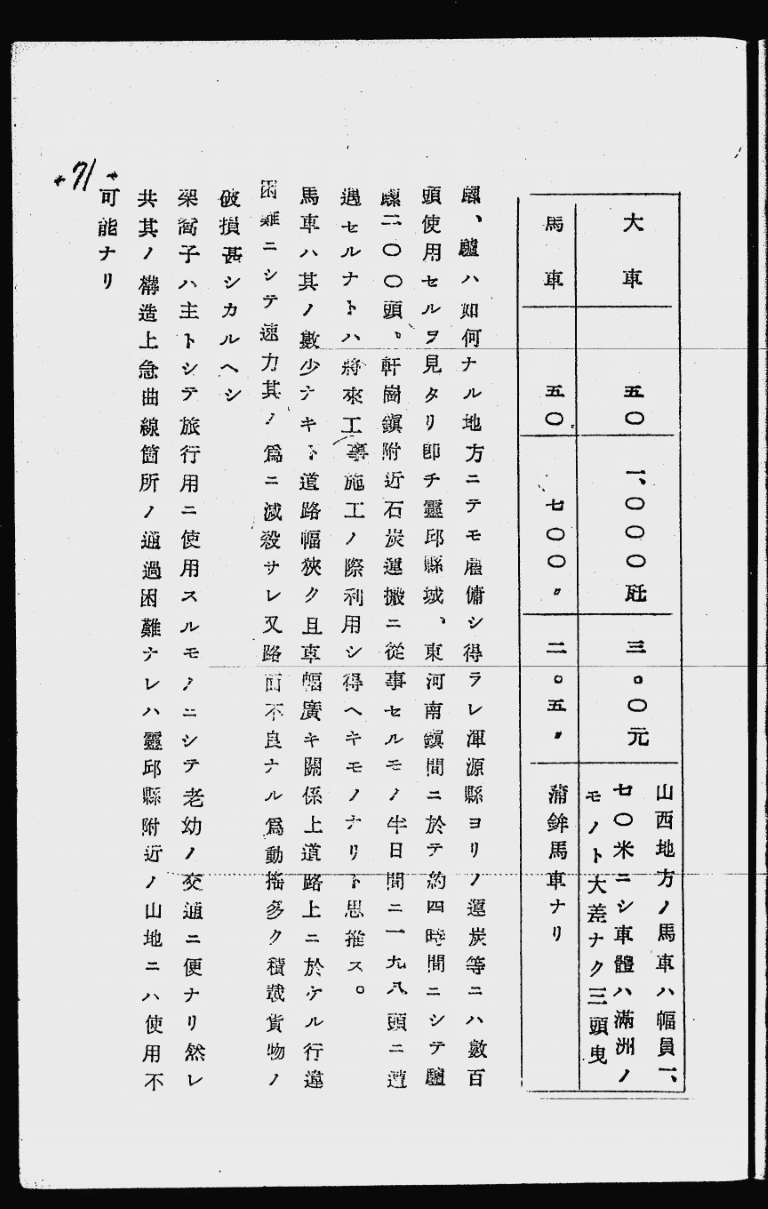 大車 五〇 一、〇〇〇瓩 三。〇元 山西地方ノ馬車ハ幅員一、
七〇米ニシ車體ハ滿洲ノ
モノト大差ナク三頭曳
馬車 五〇 七〇〇〃 二。五〃 蒲鉾馬車ナリ
騾、驢ハ如何ナル地方ニテモ雇傭シ得ラレ渾源縣ヨリノ運炭等ニハ數百
頭使用セルヲ見タリ卽チ靈邱縣城、東河南鎭間ニ於テ約四時間ニシテ驢
騾二〇〇頭。軒崗鎭附近石炭運搬ニ從事セルモノ半日間ニ一九八頭ニ遭
遇セルナトハ將來工事施工ノ際利用シ得ヘキモノナリト思推ス。
馬車ハ其ノ數少ナキト道路幅狹ク且車幅廣キ關係上道路上ニ於ケル行違
困難ニシテ速力其ノ爲ニ減殺サレ又路面不良ナル爲動搖多ク積載貨物ノ
破損甚シカルヘシ
架窩子ハ主トシテ旅行用ニ使用スルモノニシテ老幼ノ交通ニ便ナリ然レ
共其ノ構造上急曲線箇所ノ通過困難ナレハ靈邱縣附近ノ山地ニハ使用不
可能ナリ
71